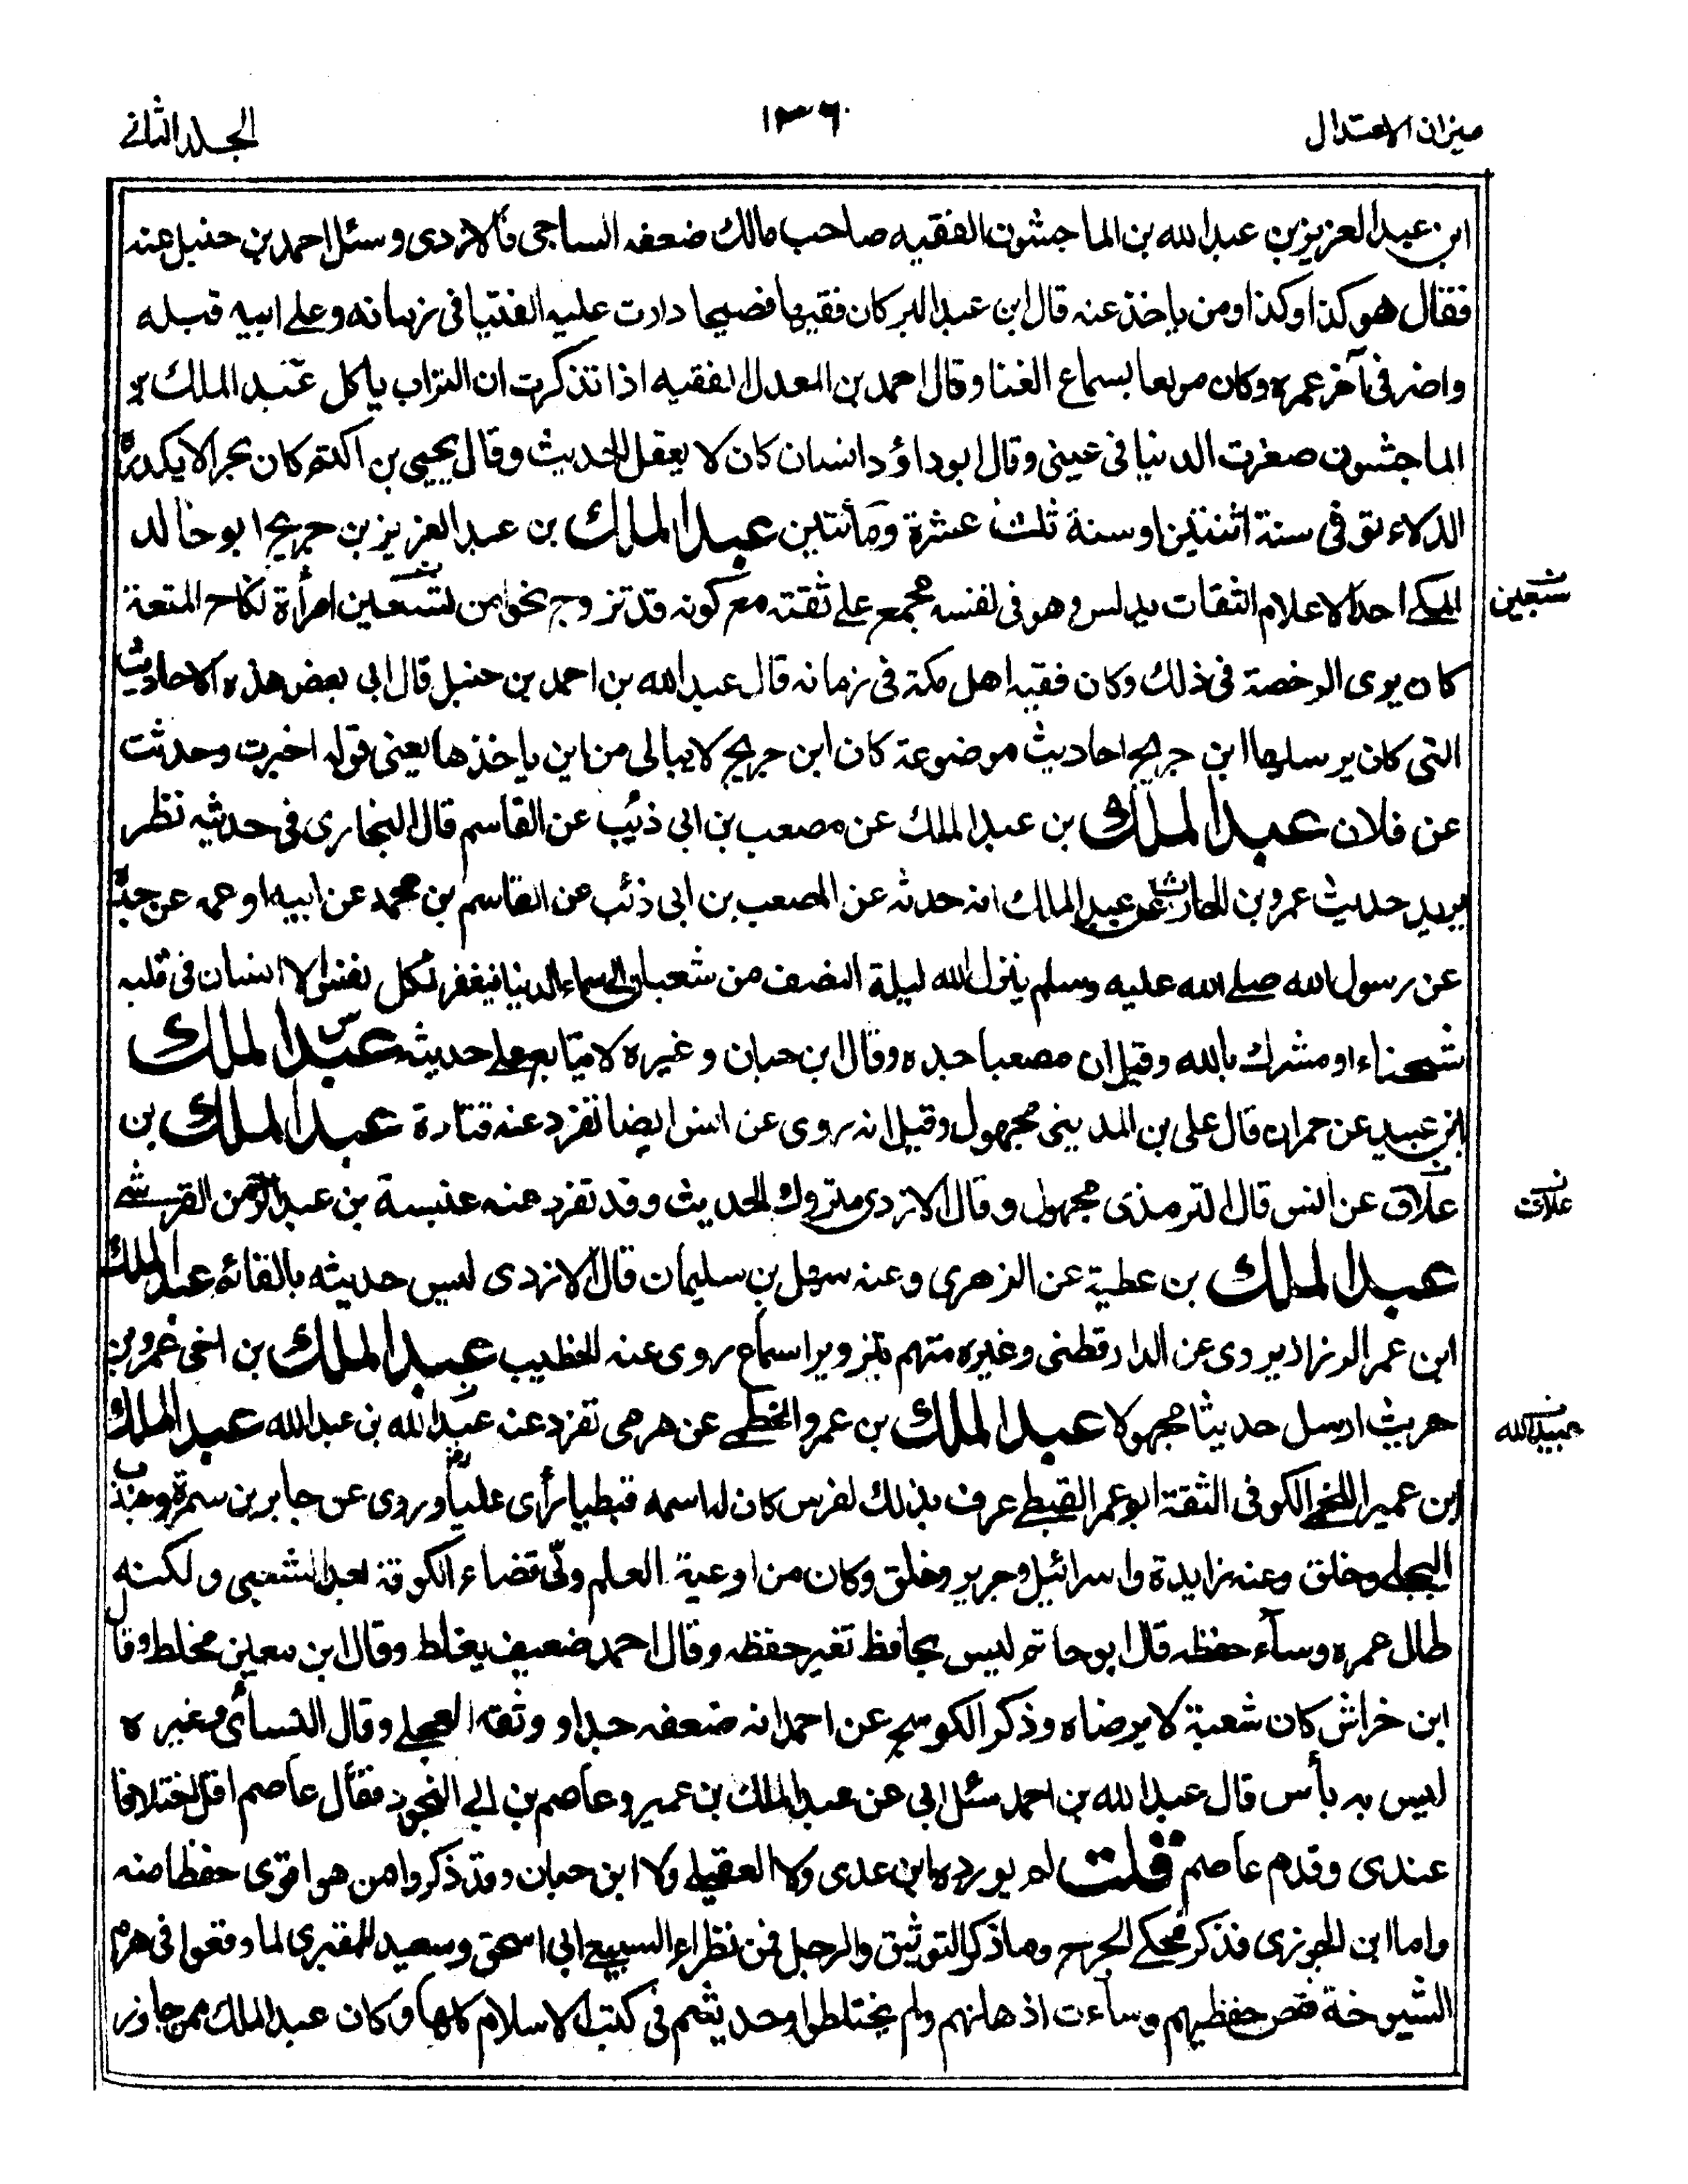 ميزان الاعتدال
١٣٦
الجلد الثاني
ابن عبد العزيز بن عبد الله بن الماجشون الفقيه صاحب مالك ضعفه الساجي فالازدي وسئل احمد بن حنبل عنه
فقال هو كذا وكذا ومن ياخذ عنه قال ابن عبد البر كان فقيها فصيحا دارت عليه الفتيا في زمانه وعلى ابيه قبله
واضر في آخر عمره وكان مولعا بسماع الغنا وقال احمد بن المعدل الفقيه اذا تذكرت ان التراب ياكل عبد الملك بن
الماجشون صغرت الدنيا في عيني وقال ابو داؤد انسان كان لا يعقل الحديث وقال يحيى بن اكثم كان بحرا لا يكدره
الدلاء توفي سنة اثنتين او سنة ثلث عشرة ومائتين عبد الملك بن عبد العزيز بن جريج ابو خالد
المكي احد الاعلام الثقات يدلس وهو في نفسه مجمع على ثقته مع كونه قد تزوج نحوا من تسعين امرأة نكاح المتعة
سبعين
كان يرى الرخصة في ذلك وكان فقيه اهل مكة في زمانه قال عبد الله بن احمد بن حنبل قال ابي بعض هذه الاحاديث
التي كان يرسلها ابن جريج احاديث موضوعة كان ابن جريج لا يبالي من اين ياخذها يعني قوله اخبرت وحدثت
عن فلان عبد الملك بن عبد الملك عن مصعب بن ابي ذئب عن القاسم قال البخاري في حديثه نظر
يريد حديث عمرو بن الحارث عن عبد الملك انه حدثه عن المصعب بن ابي ذئب عن القاسم بن محمد عن ابيه او عمه عن جده
عن رسول الله صلى الله عليه وسلم ينزل الله ليلة النصف من شعبان الى سماء الدنيا فيغفر لكل نفس الا انسان في قلبه
شحناء او مشرك بالله وقيل ان مصعبا جده وقال ابن حبان وغيره لا يتابع على حديثه عبد الملك
بن عبيد عن حمران قال علي بن المديني مجهول وقيل انه روى عن انس ايضا تفرد عنه قتادة عبد الملك بن
علاق عن انس قال الترمذي مجهول وقال الازدي متروك الحديث وقد تفرد عنه عنبسة بن عبد الرحمن القرشي
علاق
عبد الملك بن عطية عن الزهري وعنه سهل بن سليمان قال الازدي ليس حديثه بالقائم عبد الملك
ابن عمر الرزاز يروي عن الدارقطني وغيره متهم بتزوير اسماع روى عنه الخطيب عبد الملك بن اخي عمرو بن
حريث ارسل حديثا مجهولا عبد الملك بن عمرو الخطمي عن هرمي تفرد عنه عبد الله بن عبد الله عبد الملك
عبيد الله
ابن عمير اللخمي الكوفي الثقة ابو عمر القبطي عرف بذلك لفرس كان له اسمه قبطيا رأى عليا وروى عن جابر بن سمرة وجندب
البجلي وخلق وعنه زايدة واسرائيل وجرير وخلق وكان من اوعية العلم ولّى قضاء الكوفة بعد الشعبي ولكنه
طال عمره وسآء حفظه قال ابو حاتم ليس بحافظ تغير حفظه وقال احمد ضعيف يغلط وقال ابن معين مخلط وقال
ابن خراش كان شعبة لا يرضاه وذكر الكوسج عن احمد انه ضعفه جدا ووثقه العجلي وقال النسائي وغيره
ليس به بأس قال عبد الله بن احمد سئل ابي عن عبد الملك بن عمير وعاصم بن ابي النجود فقال عاصم اقل اختلافا
عندي وقدم عاصم قلت لم يورده ابن عدي ولا العقيلي ولا ابن حبان وقد ذكروا من هو اقوى حفظا منه
واما ابن الجوزي فذكر فحكى الجرح وما ذكر التوثيق والرجل فمن نظراء السبيعي ابي اسحق وسعيد المقبري لما وقعوا في هرم
الشيوخة نقص حفظهم وسآءت اذهانهم ولم يختلطوا وحديثهم في كتب الاسلام كلها وكان عبد الملك ممن جاوز